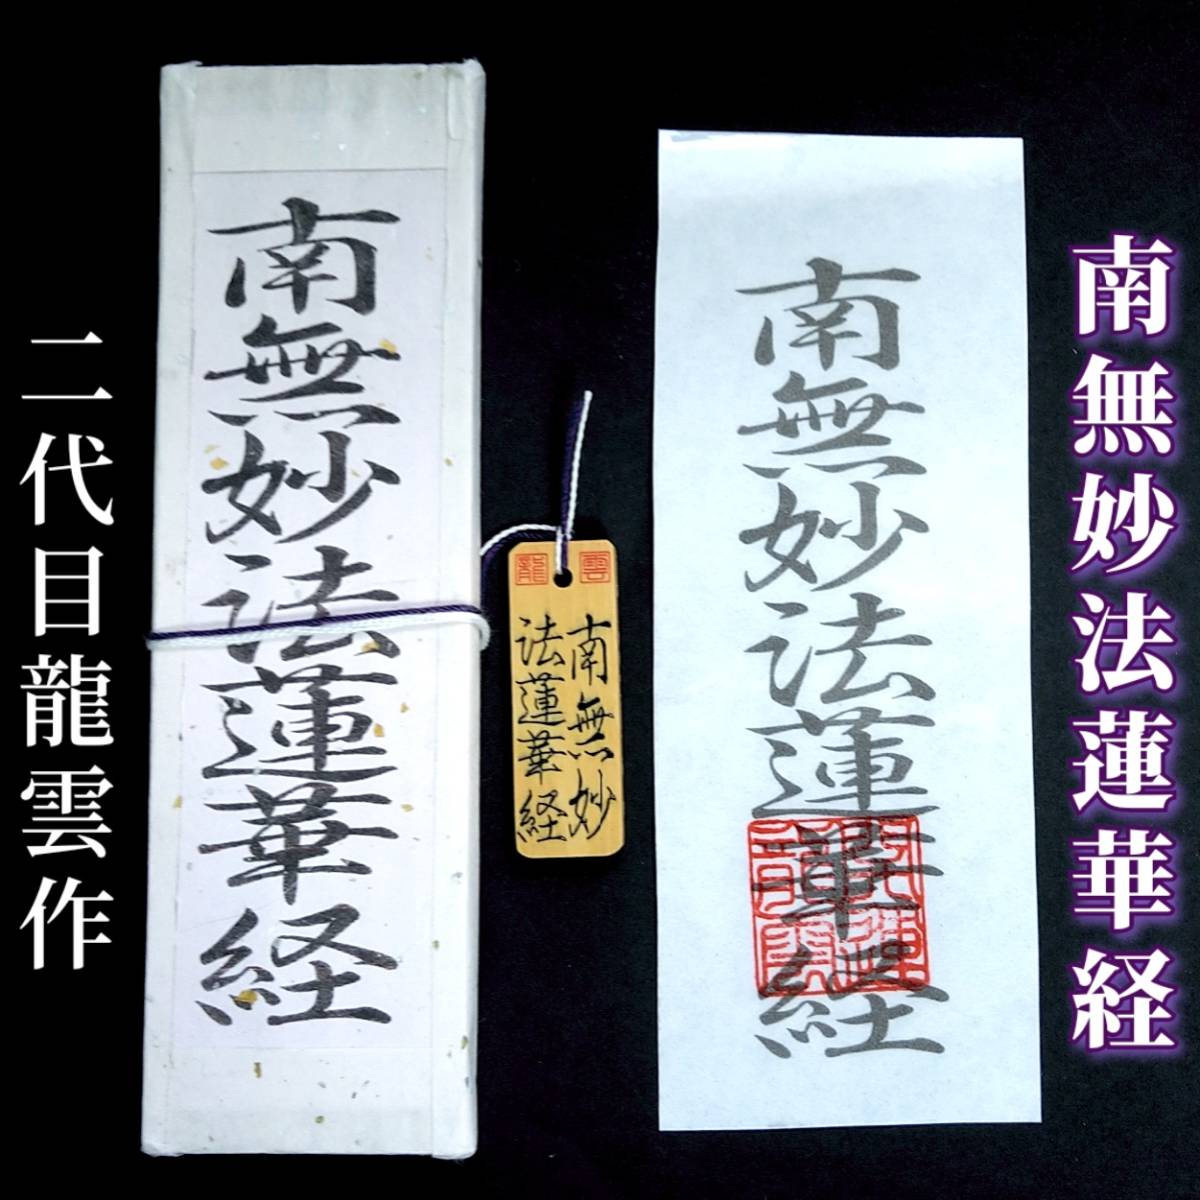 南無妙法蓮華経
南無妙法蓮華経
龍
雲
南無妙
法蓮華経
南無妙法蓮華経
二代目龍雲作